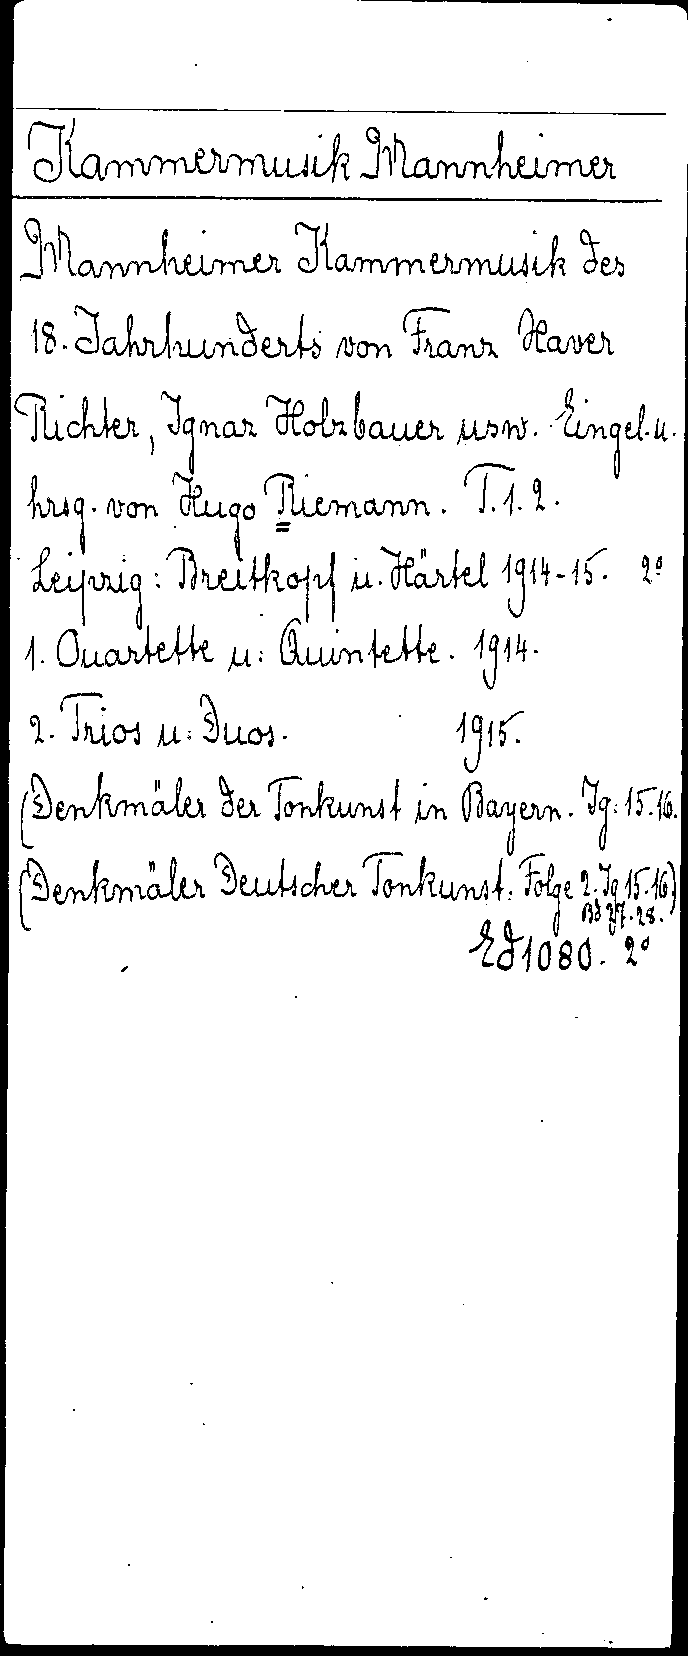 Kammermusik Mannheimer
Mannheimer Kammermusik des
18. Jahrhunderts von Franz Xaver
Richter, Ignaz Holzbauer usw. Eingel. u.
hrsg. von Hugo Riemann. T. 1. 2.
Leipzig: Breitkopf u. Härtel 1914-15. 2°
1. Quartette u. Quintette. 1914.
2. Trios u. Duos. 1915.
(Denkmäler der Tonkunst in Bayern. Jg. 15.16.
(Denkmäler Deutscher Tonkunst. Folge 2. Jg 15.16)
Bd 27.28.
Ed 1080. 2°